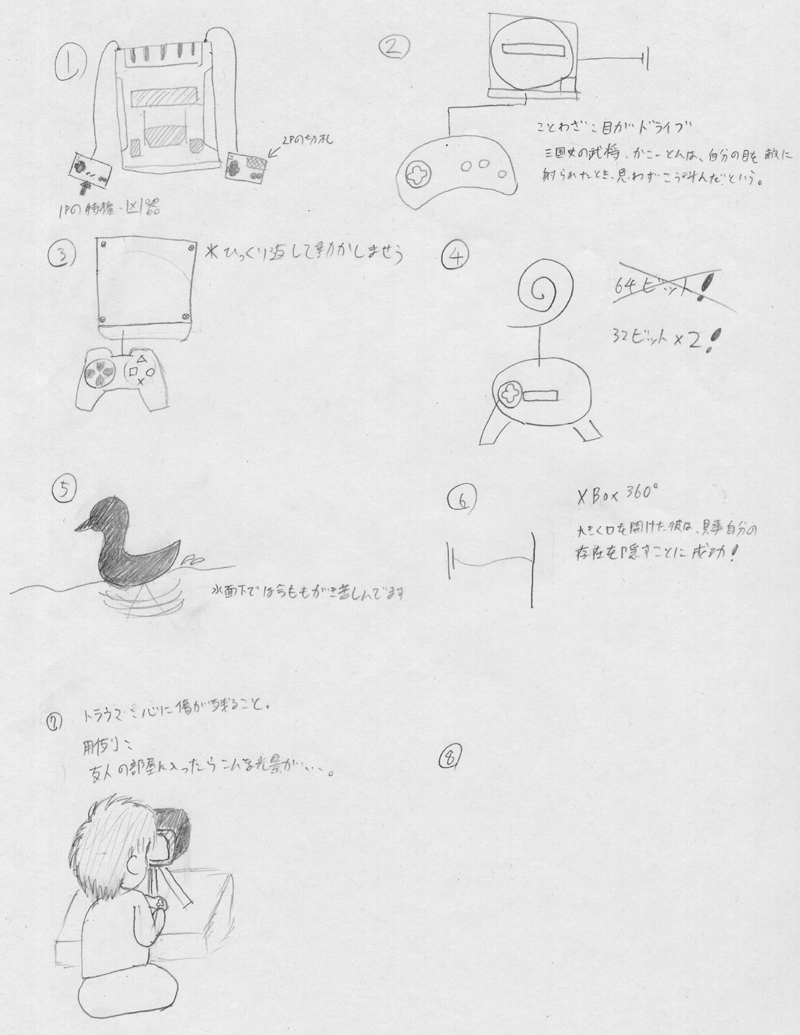 ①
2Pの切札
1Pの特権・凶器
②
ことわざ:目がドライブ
三国史の武将、かこーとんは、自分の目を敵に
射られたとき、思わずこう叫んだという。
③
※ひっくり返して動かしませう
④
64ビット!
32ビット×2!
⑤
水面下では今ももがき苦しんでます
⑥
XBox 360°
大きく口を開けた彼は、見事自分の
存在を隠すことに成功!
⑦
トラウマ:心に傷が残ること。
用例:
友人の部屋に入ったらこんな光景が・・・。
⑧